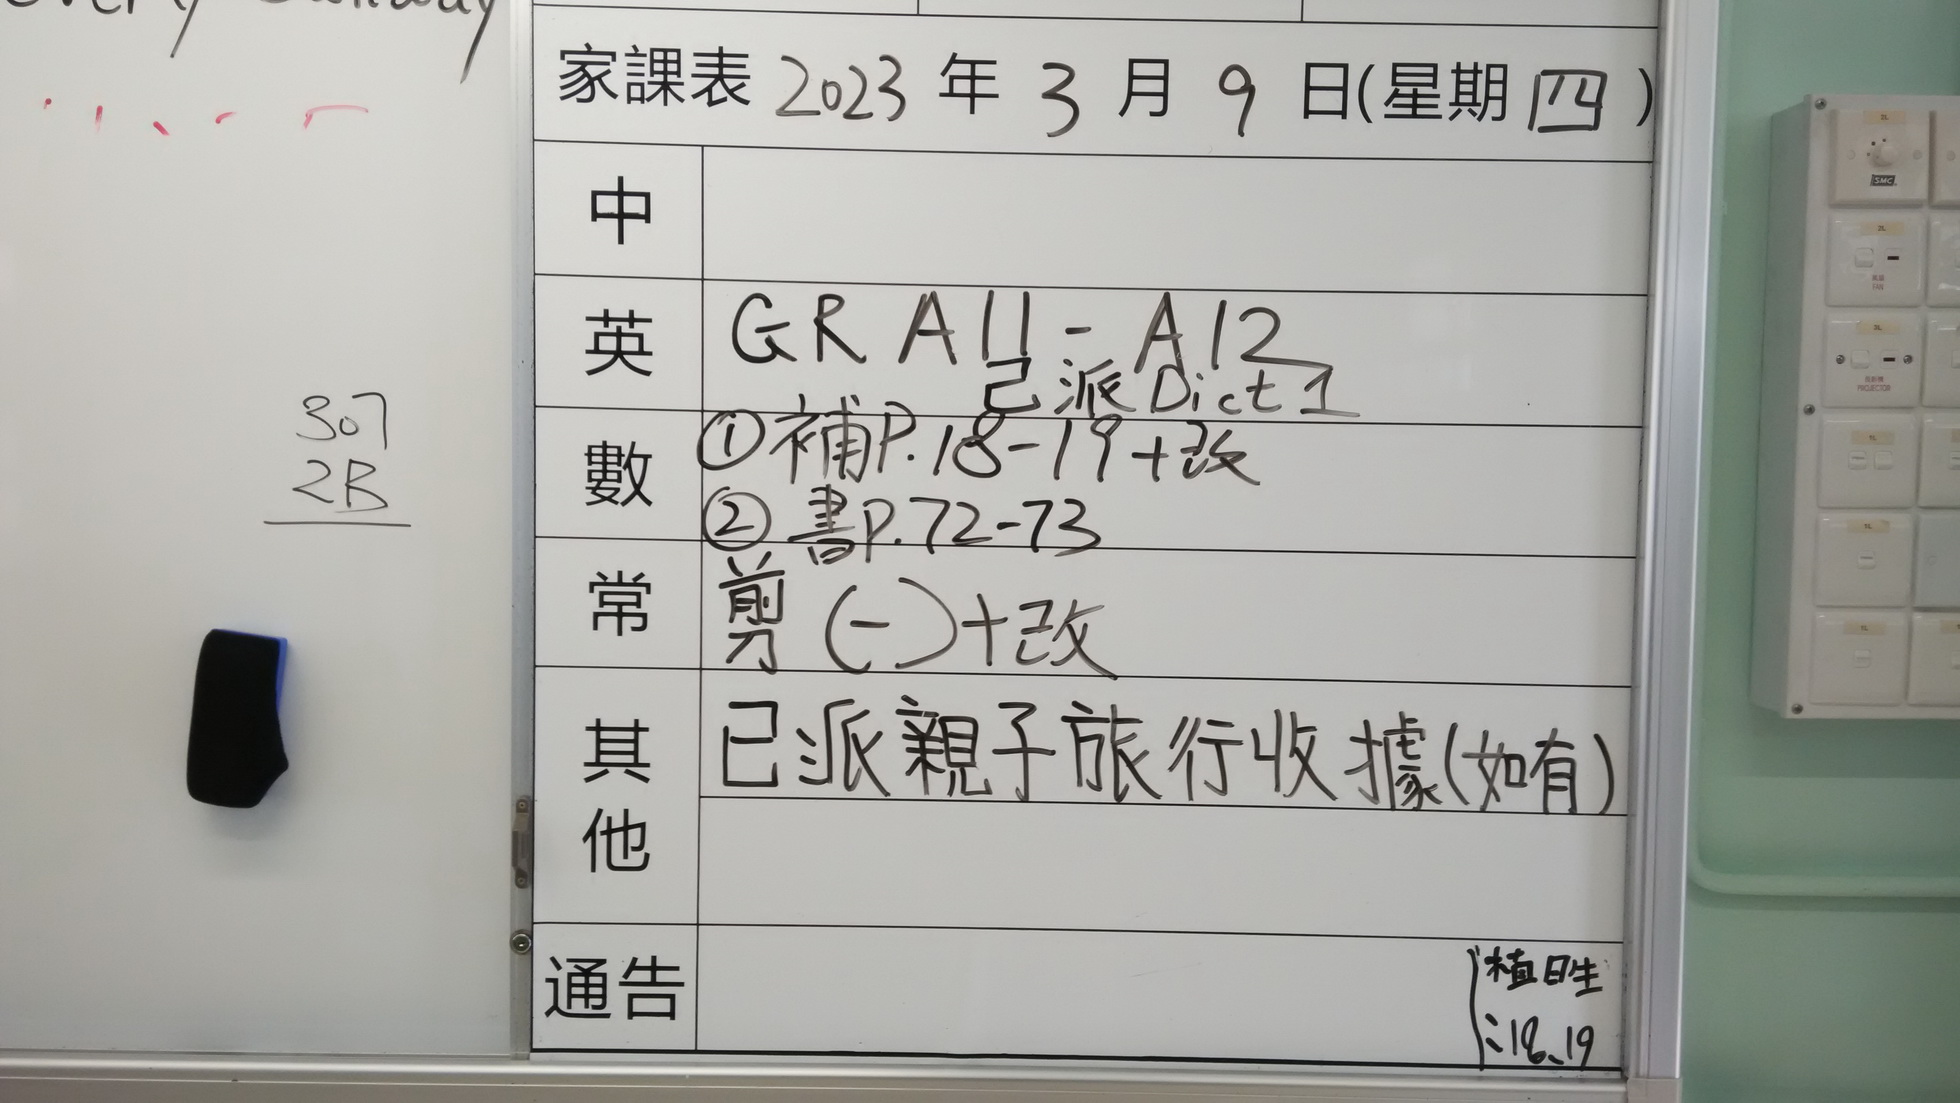 307
2B
家課表 2023 年 3 月 9 日(星期 四 )
中
英 GR A11 - A12
已派 Dict 1
數 ①補P.18-19+改
②書P.72-73
常 剪(一)+改
其他 已派親子旅行收據(如有)
通告
植日生
:18、19
SMC
FAN
PROJECTOR